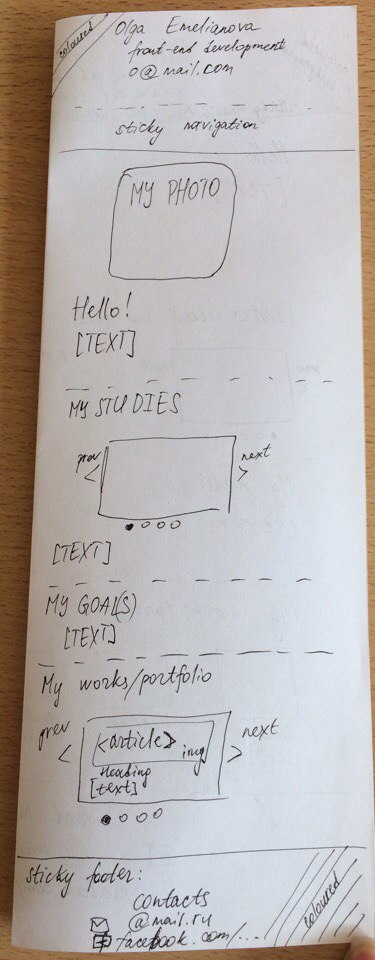 coloured
Olga Emelianova
front-end development
o@mail.com
sticky navigation
MY PHOTO
Hello!
[TEXT]
MY STUDIES
prev
<
next
>
[TEXT]
MY GOAL(S)
[TEXT]
My works/portfolio
prev
<
<article>
img
Heading
[text]
next
>
sticky footer:
contacts
@mail.ru
facebook.com/...
coloured